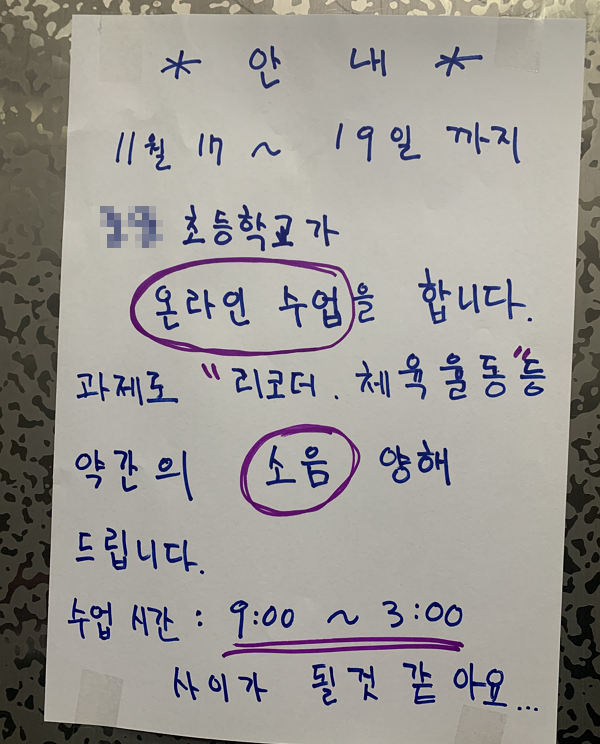 * 안 내 *
11월 17 ~ 19일 까지
초등학교가
온라인 수업을 합니다.
과제로 "리코더. 체육율동"등
약간의 소음 양해
드립니다.
수업 시간 : 9:00 ~ 3:00
사이가 될것 같아요...